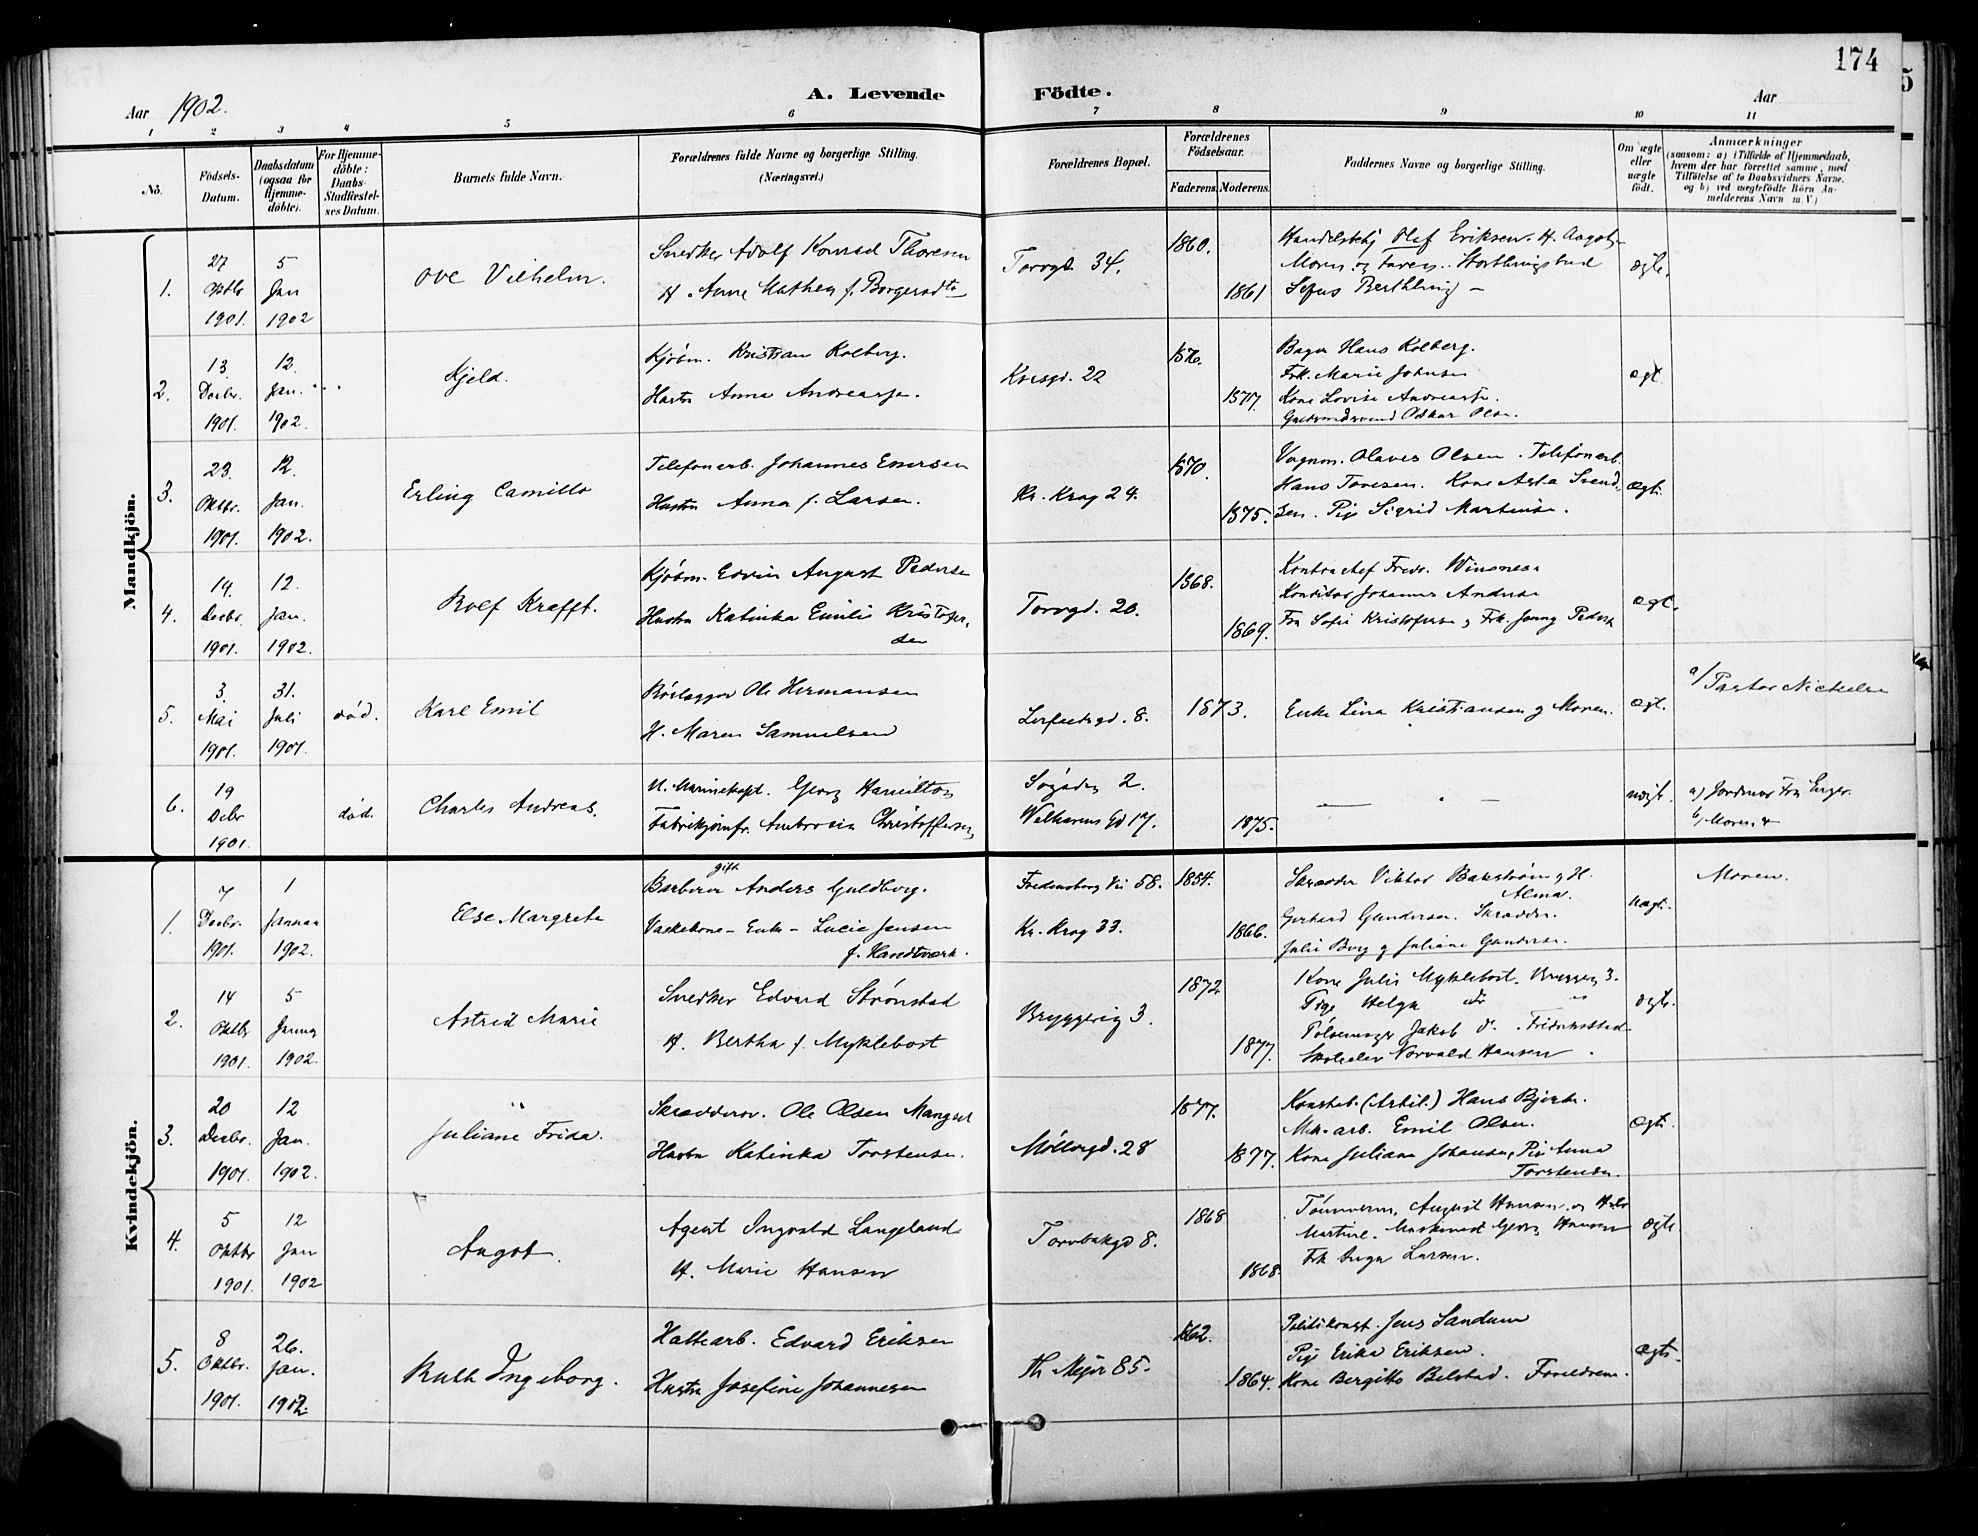 174
5
Aar 1902.
A. Levende Födte.
Aar
1 2 3 4 5 6 7 8 9 10 11
No.
Födsels-Datum.
Daabsdatum (ogsaa for Hjemme-döbte).
For Hjemme-döbte: Daabs-Stadfæstel-ses Datum.
Barnets fulde Navn.
Forældrenes fulde Navne og borgerlige Stilling.
(Næringsvei.)
Forældrenes Bopæl.
Forældrenes Födselsaar.
Faderens. Moderens.
Faddernes Navne og borgerlige Stilling.
Om ægte eller uægte födt.
Anmærkninger
(saasom: a) i Tilfælde af Hjemmedaab,
hvem der har forrettet samme, med
Tilföielse af to Daabsvidners Navne,
og b) ved uægtefödte Börn An-
melderens Navn m.V.)
Mandkjön.
1.
27 Oktbr 1901.
5 Jan 1902
Ove Vilhelm.
Snedker Adolf Konrad Thoresen
H. Anne Mathea f. Borgersdt
Torvgd. 34.
1860.
1861
Olaf Eriksen. H. Aagot
Moren og Faren. Storthingsbud
Berthling
ægte.
2.
13 Decbr. 1901.
12. Jan. 1902.
Kjeld.
Kjøbm. Kristian Kolberg.
Hustru Anna Andreassen.
Korsgd. 22
1876.
1877.
Bager Hans Kolberg.
Frk. Marie Johnsen
Kone Lovise Andreassen.
Guldsmedsvend Oskar Olsen.
ægt.
3.
23. Oktbr. 1901.
12. Jan. 1902.
Erling Camillo
Telefonarb. Johannes Enersen
Hustru Anna f. Larsen.
Kr. Krog 24.
1870.
1875.
Vognm. Olaves Olsen. Telefonarb.
Hans Toresen. Kone Asta Svend-
sen. Pige Sigrid Martinsen.
ægte.
4.
14. Decbr. 1901.
12. Jan. 1902.
Rolf Krefft.
Kjøbm. Edvin August Pedersen
Hustru Katinka Emilie Kristofer-
sen
Torvgd. 20.
1868.
1869.
Kontorchef Fredr. Winsnes
Konditor Johannes Andersen
Fru Sofie Kristofersen, Frk. Jenny Pedersen
ægt.
5.
3. Mai 1901.
31. Juli 1901.
død.
Karl Emil
Rørlægger Ole Hermansen
H. Maren Samuelsen
Lerfaldsgd. 8.
1873.
Enke Lina Kristiansen og Moren.
ægt.
a/ Pastor Nickelsen
6.
19 Decbr 1901.
død.
Charles Andreas.
U. Marinekapt. Georg Hamilton
Fabrikjomfr. Ambrosia Christoffersen
Søgaden 2.
Welhavens Gd 17.
1875.
— " —
uægt.
a) Jordmor Fru Enger.
b/ Moren
Kvindekjön.
1.
7 Decbr. 1901.
1 Januar 1902.
Else Margrete
gift
Barberer Anders Guldborg.
Vaskekone – Enke – Lucie Jensen
f. Handtværk.
Fredensborg Vei 58.
Kr. Krog 33.
1854.
1866.
Skrædder Viktor Bakstrøm og H.
Alma.
Gerhard Gundersen. Skrædder.
Julie Berg og Juliane Gundersen.
uægt.
Moren.
2.
14 Oktbr 1901.
5 Januar 1902.
Astrid Marie
Snedker Edvard Strønstad
H. Bertha f. Myklebost
Bryggerig 3.
1872
1877.
Kone Julie Myklebost. Bryggerig 3.
Pige Helga do "
Pølsemager Jakob d. Fredrikstad
Skoleelev Norvald Hansen.
ægte.
3.
20 Decbr. 1901.
12 Jan. 1902.
Juliane Frida.
Skrædderov. Ole Olsen Manger
Hustru Katinka Torstensen.
Møllergd. 28
1877.
1877.
Konstab. (Artil.) Hans Bjerke.
Mek. arb. Emil Olsen.
Kone Juliane Johansen, Pige Anna
Torstensen.
ægte.
4.
5 Oktbr 1901.
12 Jan 1902
Aagot.
Agent Ingvald Langeland
H. Marie Hansen
Torvbakgd 8.
1868
1868.
Tømmerm. August Hansen og H.
Martine. Maskinist Georg Hansen
Frk Inga Larsen.
ægte
5.
8 Oktbr. 1901.
26. Jan. 1902.
Ruth Ingeborg.
Hattearb. Edvard Eriksen
Hustru Josefine Johannesen
Th. Mejer 85.
1862.
1864.
Politikonst. Jens Sandum
Pige Erika Eriksen.
Kone Bergitte Belstad. Forældrene.
ægte.